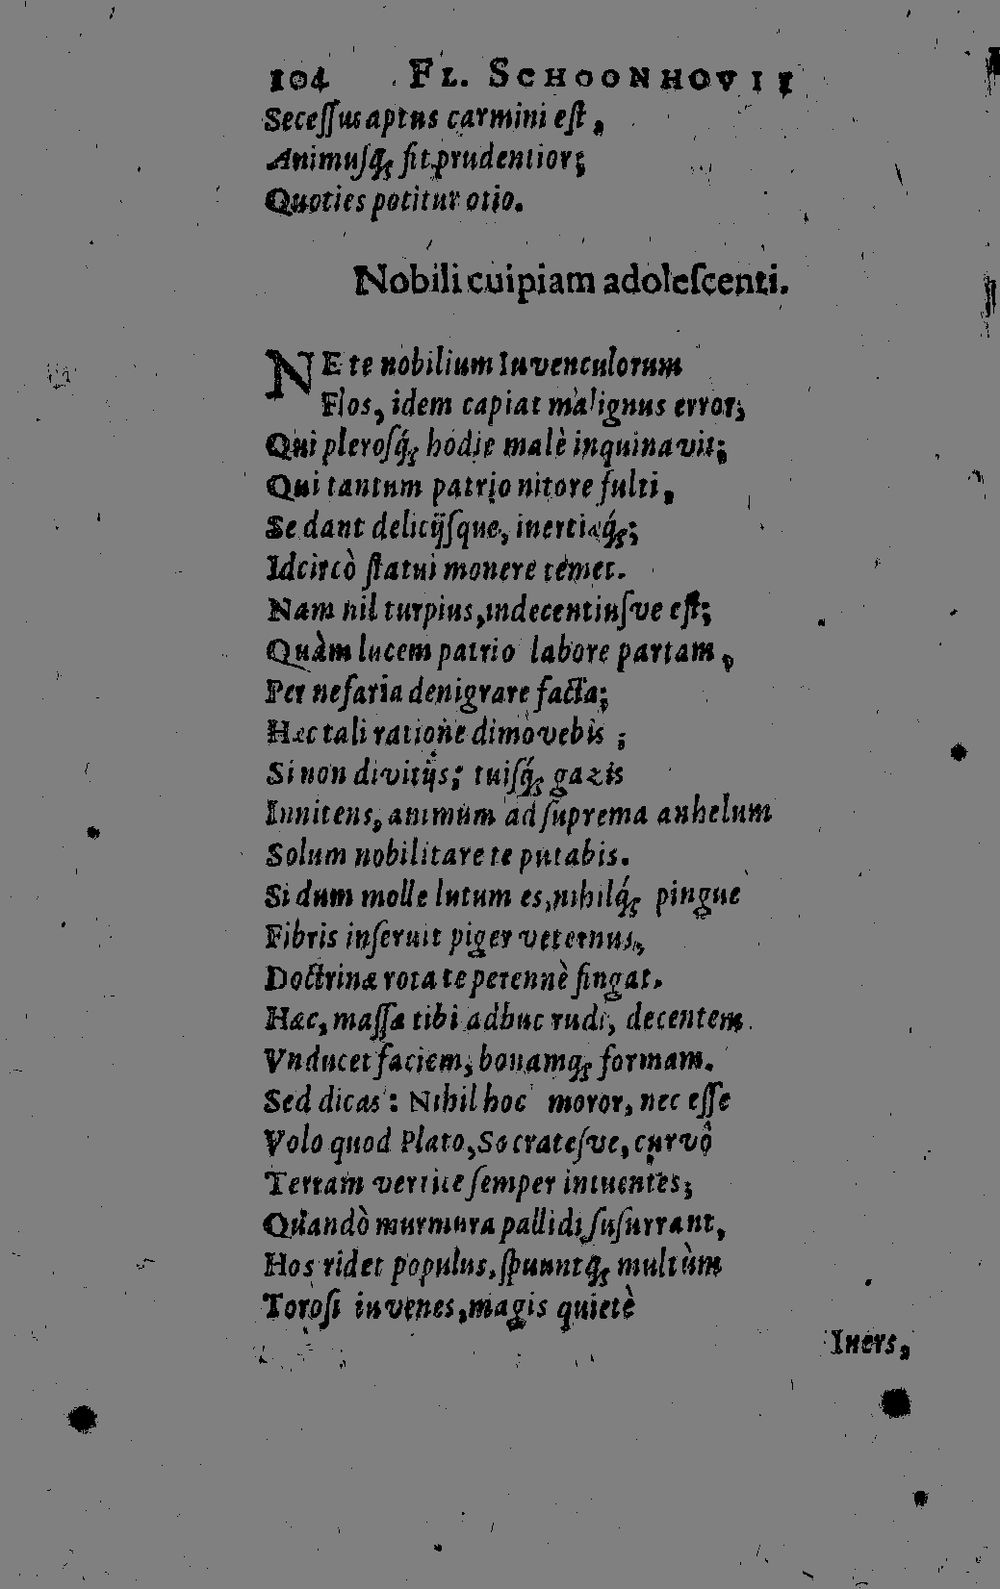 104 FL. SCHOONHOVII
Secessus aptus carmini est,
Animusq; sit prudentior;
Quoties potitur otio.
Nobili cuipiam adolescenti.
NE te nobilium Iuvenculorum
Flos, idem capiat malignus error;
Qui plerosq́; hodie malè inquinavit;
Qui tantum patrio nitore fulti,
Se dant delicijsque, inertiæq́;;
Idcircò statui monere temet.
Nam nil turpius, indecentiusve est;
Quàm lucem patrio labore partam,
Per nefaria denigrare facta;
Hæc tali ratione dimovebis ;
Si non divitijs; tuisq́; gazis
Innitens, animum ad suprema anhelum
Solum nobilitare te putabis.
Si dum molle lutum es, nihilq́; pingue
Fibris inseruit piger veternus,
Doctrinæ rota te perennè fingat.
Hæc, massa tibi adhuc rudi, decentem
Vnducet faciem, bonamq; formam.
Sed dicas : Nihil hoc moror, nec esse
Volo quod Plato, Socratesve, curvô
Terram vertice semper intuentes;
Quandò murmura pallidi susurrant,
Hos ridet populus, spuuntq; multùm
Torosi iuvenes, magis quietè
Iners,